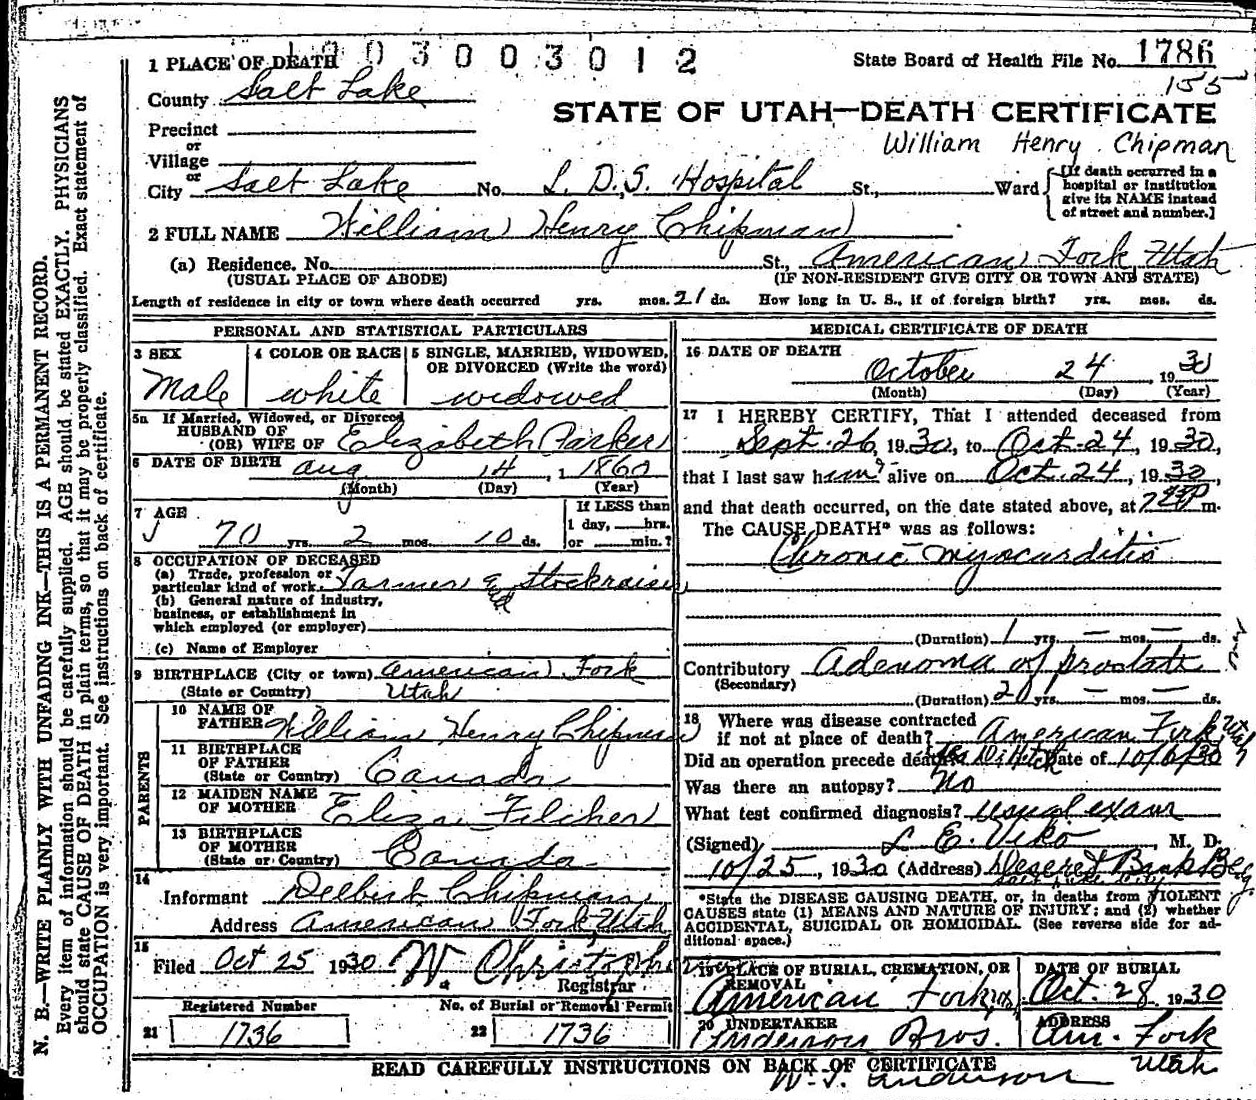 1 9 0 3 0 0 3 0 1 2
State Board of Health File No. 1786
155
STATE OF UTAH—DEATH CERTIFICATE
William Henry Chipman
1 PLACE OF DEATH
County Salt Lake
Precinct
or
Village
or
City Salt Lake No. L. D. S. Hospital St., Ward
[If death occurred in a
hospital or institution
give its NAME instead
of street and number.]
2 FULL NAME William Henry Chipman
(a) Residence. No. St., American Fork Utah
(USUAL PLACE OF ABODE) (IF NON-RESIDENT GIVE CITY OR TOWN AND STATE)
Length of residence in city or town where death occurred yrs. mos. 21 ds. How long in U. S., if of foreign birth? yrs. mos. ds.
PERSONAL AND STATISTICAL PARTICULARS
3 SEX
Male
4 COLOR OR RACE
white
5 SINGLE, MARRIED, WIDOWED,
OR DIVORCED (Write the word)
widowed
5a If Married, Widowed, or Divorced
HUSBAND OF
(OR) WIFE OF Elizabeth Parker
6 DATE OF BIRTH Aug 14, 1860
(Month) (Day) (Year)
7 AGE
70 yrs. 2 mos. 10 ds.
If LESS than
1 day, hrs.
or min.?
8 OCCUPATION OF DECEASED
(a) Trade, profession or
particular kind of work Farmer & Stockraiser
(b) General nature of industry,
business, or establishment in
which employed (or employer)
(c) Name of Employer
9 BIRTHPLACE (City or town) American Fork
(State or Country) Utah
PARENTS
10 NAME OF
FATHER William Henry Chipman
11 BIRTHPLACE
OF FATHER
(State or Country) Canada
12 MAIDEN NAME
OF MOTHER Eliza Filcher
13 BIRTHPLACE
OF MOTHER
(State or Country) Canada
14
Informant Delbert Chipman
Address American Fork Utah
15
Filed Oct 25 1930 W. Christopher
Registrar
Registered Number
21 1736
No. of Burial or Removal Permit
22 1736
MEDICAL CERTIFICATE OF DEATH
16 DATE OF DEATH
October 24, 1930
(Month) (Day) (Year)
17 I HEREBY CERTIFY, That I attended deceased from
Sept. 26, 1930, to Oct. 24, 1930,
that I last saw him alive on Oct. 24, 1930
and that death occurred, on the date stated above, at m.
The CAUSE DEATH* was as follows:
Chronic myocarditis
(Duration) 1 yrs. — mos. — ds.
Contributory Adenoma of prostate
(Secondary)
(Duration) 20 yrs. — mos. — ds.
18 Where was disease contracted
if not at place of death? American Fork Utah
Did an operation precede death? Date of 10/6/30
Was there an autopsy? No
What test confirmed diagnosis? usual exam
(Signed) L. E. Viko, M. D.
10/25, 1930 (Address) Deseret Bank Bldg
*State the DISEASE CAUSING DEATH, or, in deaths from VIOLENT
CAUSES state (1) MEANS AND NATURE OF INJURY; and (2) whether
ACCIDENTAL, SUICIDAL OR HOMICIDAL. (See reverse side for ad-
ditional space.)
19 PLACE OF BURIAL, CREMATION, OR
REMOVAL
American Fork
DATE OF BURIAL
Oct. 28 1930
20 UNDERTAKER
Anderson Bros.
ADDRESS
Am. Fork
Utah
READ CAREFULLY INSTRUCTIONS ON BACK OF CERTIFICATE
W. J. Anderson
N. B.—WRITE PLAINLY WITH UNFADING INK—THIS IS A PERMANENT RECORD.
Every item of information should be carefully supplied. AGE should be stated EXACTLY. PHYSICIANS
should state CAUSE OF DEATH in plain terms, so that it may be properly classified. Exact statement of
OCCUPATION is very important. See instructions on back of certificate.